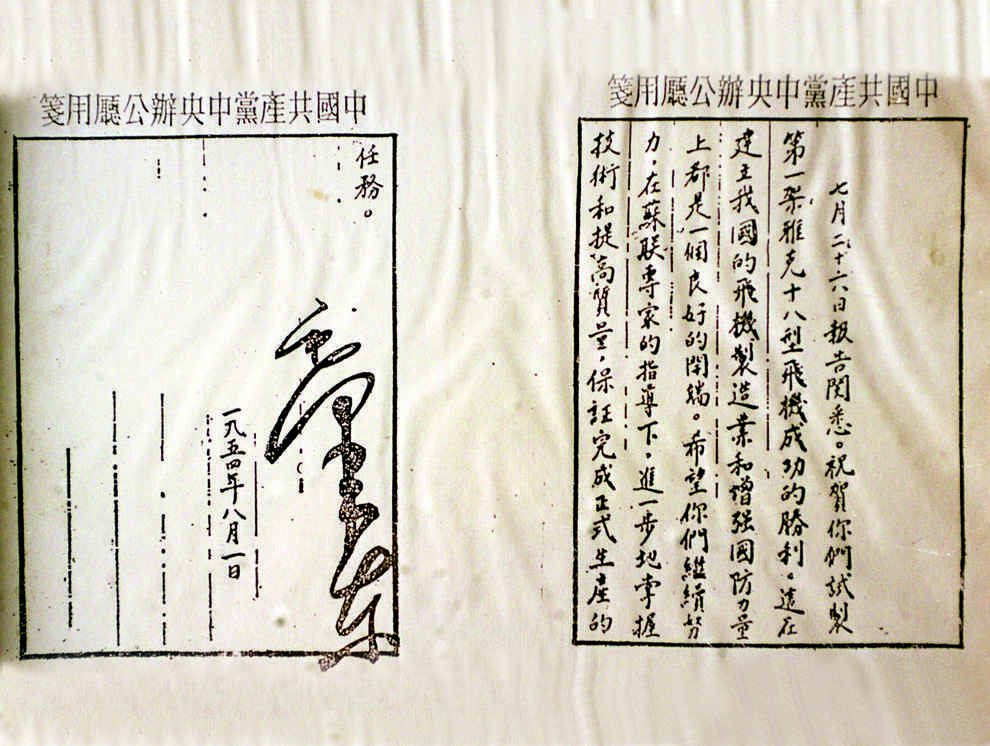 中國共產黨中央辦公廳用箋
七月二十六日報告閱悉。祝賀你們試製
第一架雅克十八型飛機成功的勝利。這在
建立我國的飛機製造業和增强國防力量
上都是一個良好的開端。希望你們繼續努
力，在蘇联專家的指導下，進一步地掌握
技術和提高質量，保証完成正式生產的
中國共產黨中央辦公廳用箋
任務。
毛澤東
一九五四年八月一日